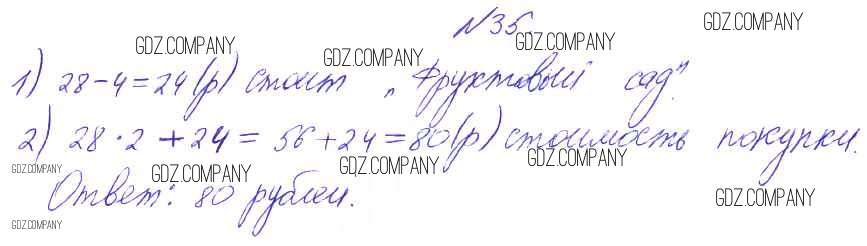 №35
GDZ.COMPANY
GDZ.COMPANY
GDZ.COMPANY
GDZ.COMPANY
1) 28-4=24(р) стоит „Фруктовый сад".
2) 28·2+24=56+24=80(р) стоимость покупки.
GDZ.COMPANY
GDZ.COMPANY
GDZ.COMPANY
GDZ.COMPANY
Ответ: 80 рублей.
GDZ.COMPANY
GDZ.COMPANY